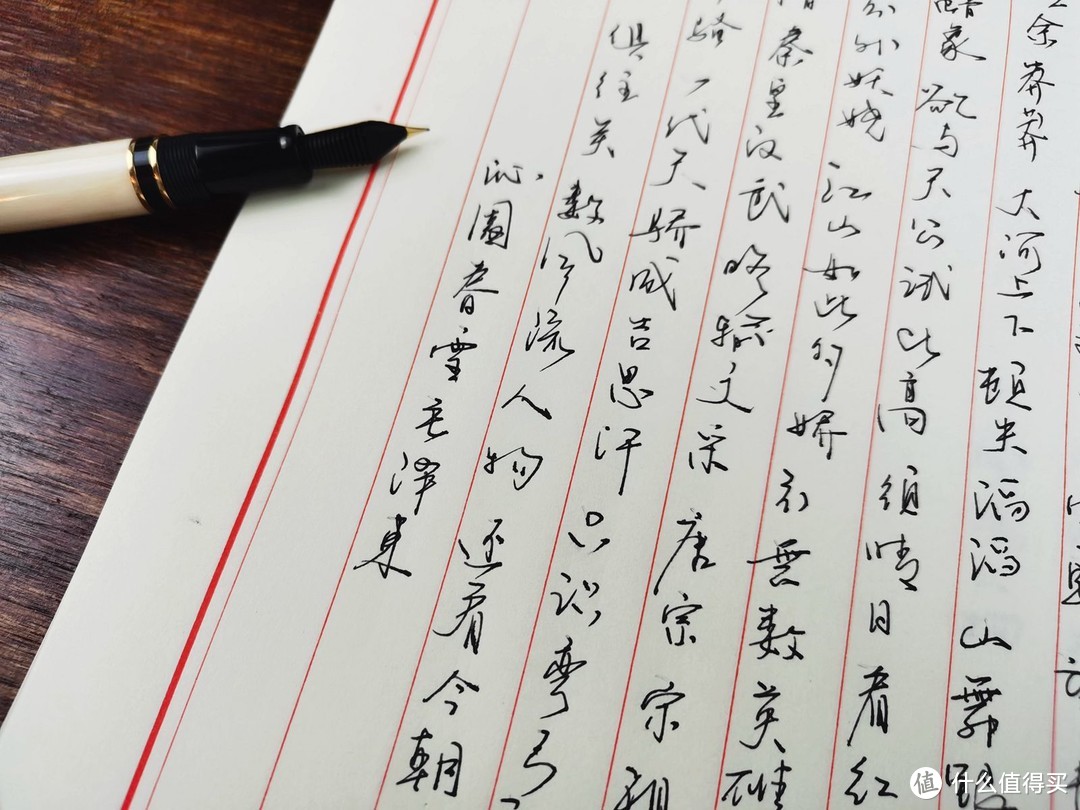 余莽莽 大河上下 顿失滔滔 山舞银
蜡象 欲与天公试比高 须晴日 看红
分外妖娆 江山如此多娇 引無数英雄
惜秦皇汉武 略输文采 唐宗宋祖
骚 一代天骄 成吉思汗 只识弯弓
俱往矣 数风流人物 还看今朝
沁園春雪 毛泽東
值 什么值得买